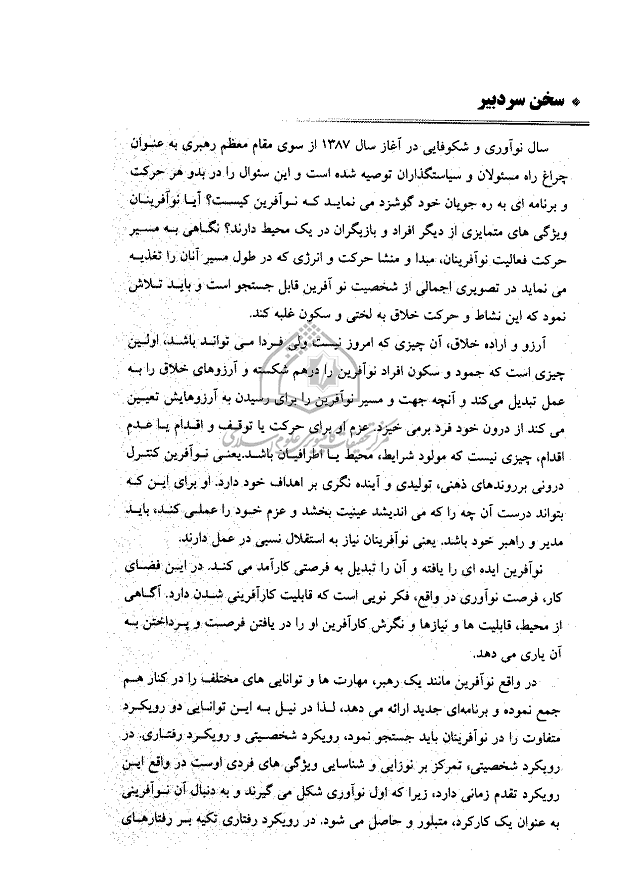 * سخن سردبیر
سال نوآوری و شکوفایی در آغاز سال ۱۳۸۷ از سوی مقام معظم رهبری به عنوان
چراغ راه مسئولان و سیاستگذاران توصیه شده است و این سئوال را در بدو هر حرکت
و برنامه ای به ره جویان خود گوشزد می نماید که نوآفرین کیست؟ آیا نوآفرینان
ویژگی های متمایزی از دیگر افراد و بازیگران در یک محیط دارند؟ نگاهی به مسیر
حرکت فعالیت نوآفرینان، مبدا و منشا حرکت و انرژی که در طول مسیر آنان را تغذیه
می نماید در تصویری اجمالی از شخصیت نو آفرین قابل جستجو است و باید تلاش
نمود که این نشاط و حرکت خلاق به لختی و سکون غلبه کند.
آرزو و اراده خلاق، آن چیزی که امروز نیست ولی فردا می تواند باشد، اولین
چیزی است که جمود و سکون افراد نوآفرین را درهم شکسته و آرزوهای خلاق را به
عمل تبدیل می‌کند و آنچه جهت و مسیر نوآفرین را برای رسیدن به آرزوهایش تعیین
می کند از درون خود فرد برمی خیزد. عزم او برای حرکت یا توقیف و اقدام یا عدم
اقدام، چیزی نیست که مولود شرایط، محیط یا اطرافیان باشد.یعنی نوآفرین کنترل
درونی برروندهای ذهنی، تولیدی و آینده نگری بر اهداف خود دارد. او برای این که
بتواند درست آن چه را که می اندیشد عینیت بخشد و عزم خود را عملی کند، باید
مدیر و راهبر خود باشد. یعنی نوآفرینان نیاز به استقلال نسبی در عمل دارند.
نوآفرین ایده ای را یافته و آن را تبدیل به فرصتی کارآمد می کند. در این فضای
کار، فرصت نوآوری در واقع، فکر نویی است که قابلیت کارآفرینی شدن دارد. آگاهی
از محیط، قابلیت ها و نیازها و نگرش کارآفرین او را در یافتن فرصت و پرداختن به
آن یاری می دهد.
در واقع نوآفرین مانند یک رهبر، مهارت ها و توانایی های مختلف را در کنار هم
جمع نموده و برنامه‌ای جدید ارائه می دهد، لذا در نیل به این توانایی دو رویکرد
متفاوت را در نوآفرینان باید جستجو نمود، رویکرد شخصیتی و رویکرد رفتاری. در
رویکرد شخصیتی، تمرکز بر نوزایی و شناسایی ویژگی های فردی اوست در واقع این
رویکرد تقدم زمانی دارد، زیرا که اول نوآوری شکل می گیرند و به دنبال آن نوآفرینی
به عنوان یک کارکرد، متبلور و حاصل می شود. در رویکرد رفتاری تکیه بر رفتارهای
مرکز تحقیقات کامپیوتری علوم اسلامی